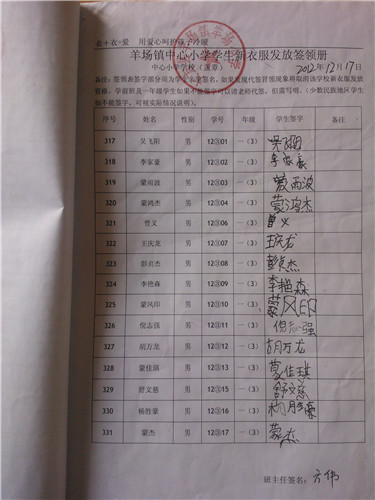 衣+衣=爱 用爱心呵护孩子冷暖
羊场镇中心小学学生新衣服发放签领册
中心小学学校(盖章) 2012年12月17日
备注:签领表签字部分须为学生本人签名,如果发现代签冒领现象将取消该学校新衣服发放
资格,学前班及一年级学生如果不能签字可以请老师代签,但需写明。(少数民族地区学生
如不能签字,可视实际情况说明)。
序号 姓名 性别 学号 年级 学生签字 备注
317 吴飞阳 男 12③01 一(3) 吴飞阳
318 李家豪 男 12③02 一(3) 李家豪
319 蒙雨波 男 12③03 一(3) 蒙雨波
320 蒙鸿杰 男 12③04 一(3) 蒙鸿杰
321 曾义 男 12③06 一(3) 曾义
322 王庆龙 男 12③07 一(3) 王庆龙
323 彭贞杰 男 12③08 一(3) 彭贞杰
324 李艳森 男 12③09 一(3) 李艳森
325 蒙风印 男 12③10 一(3) 蒙风印
326 倪志强 男 12③11 一(3) 倪志强
327 胡万龙 男 12③12 一(3) 胡万龙
328 蒙佳骐 男 12③13 一(3) 蒙佳琪
329 舒文慈 男 12③15 一(3) 舒文慈
330 杨胜豪 男 12③16 一(3) 杨胜豪
331 蒙杰 男 12③17 一(3) 蒙杰
班主任签名:方伟